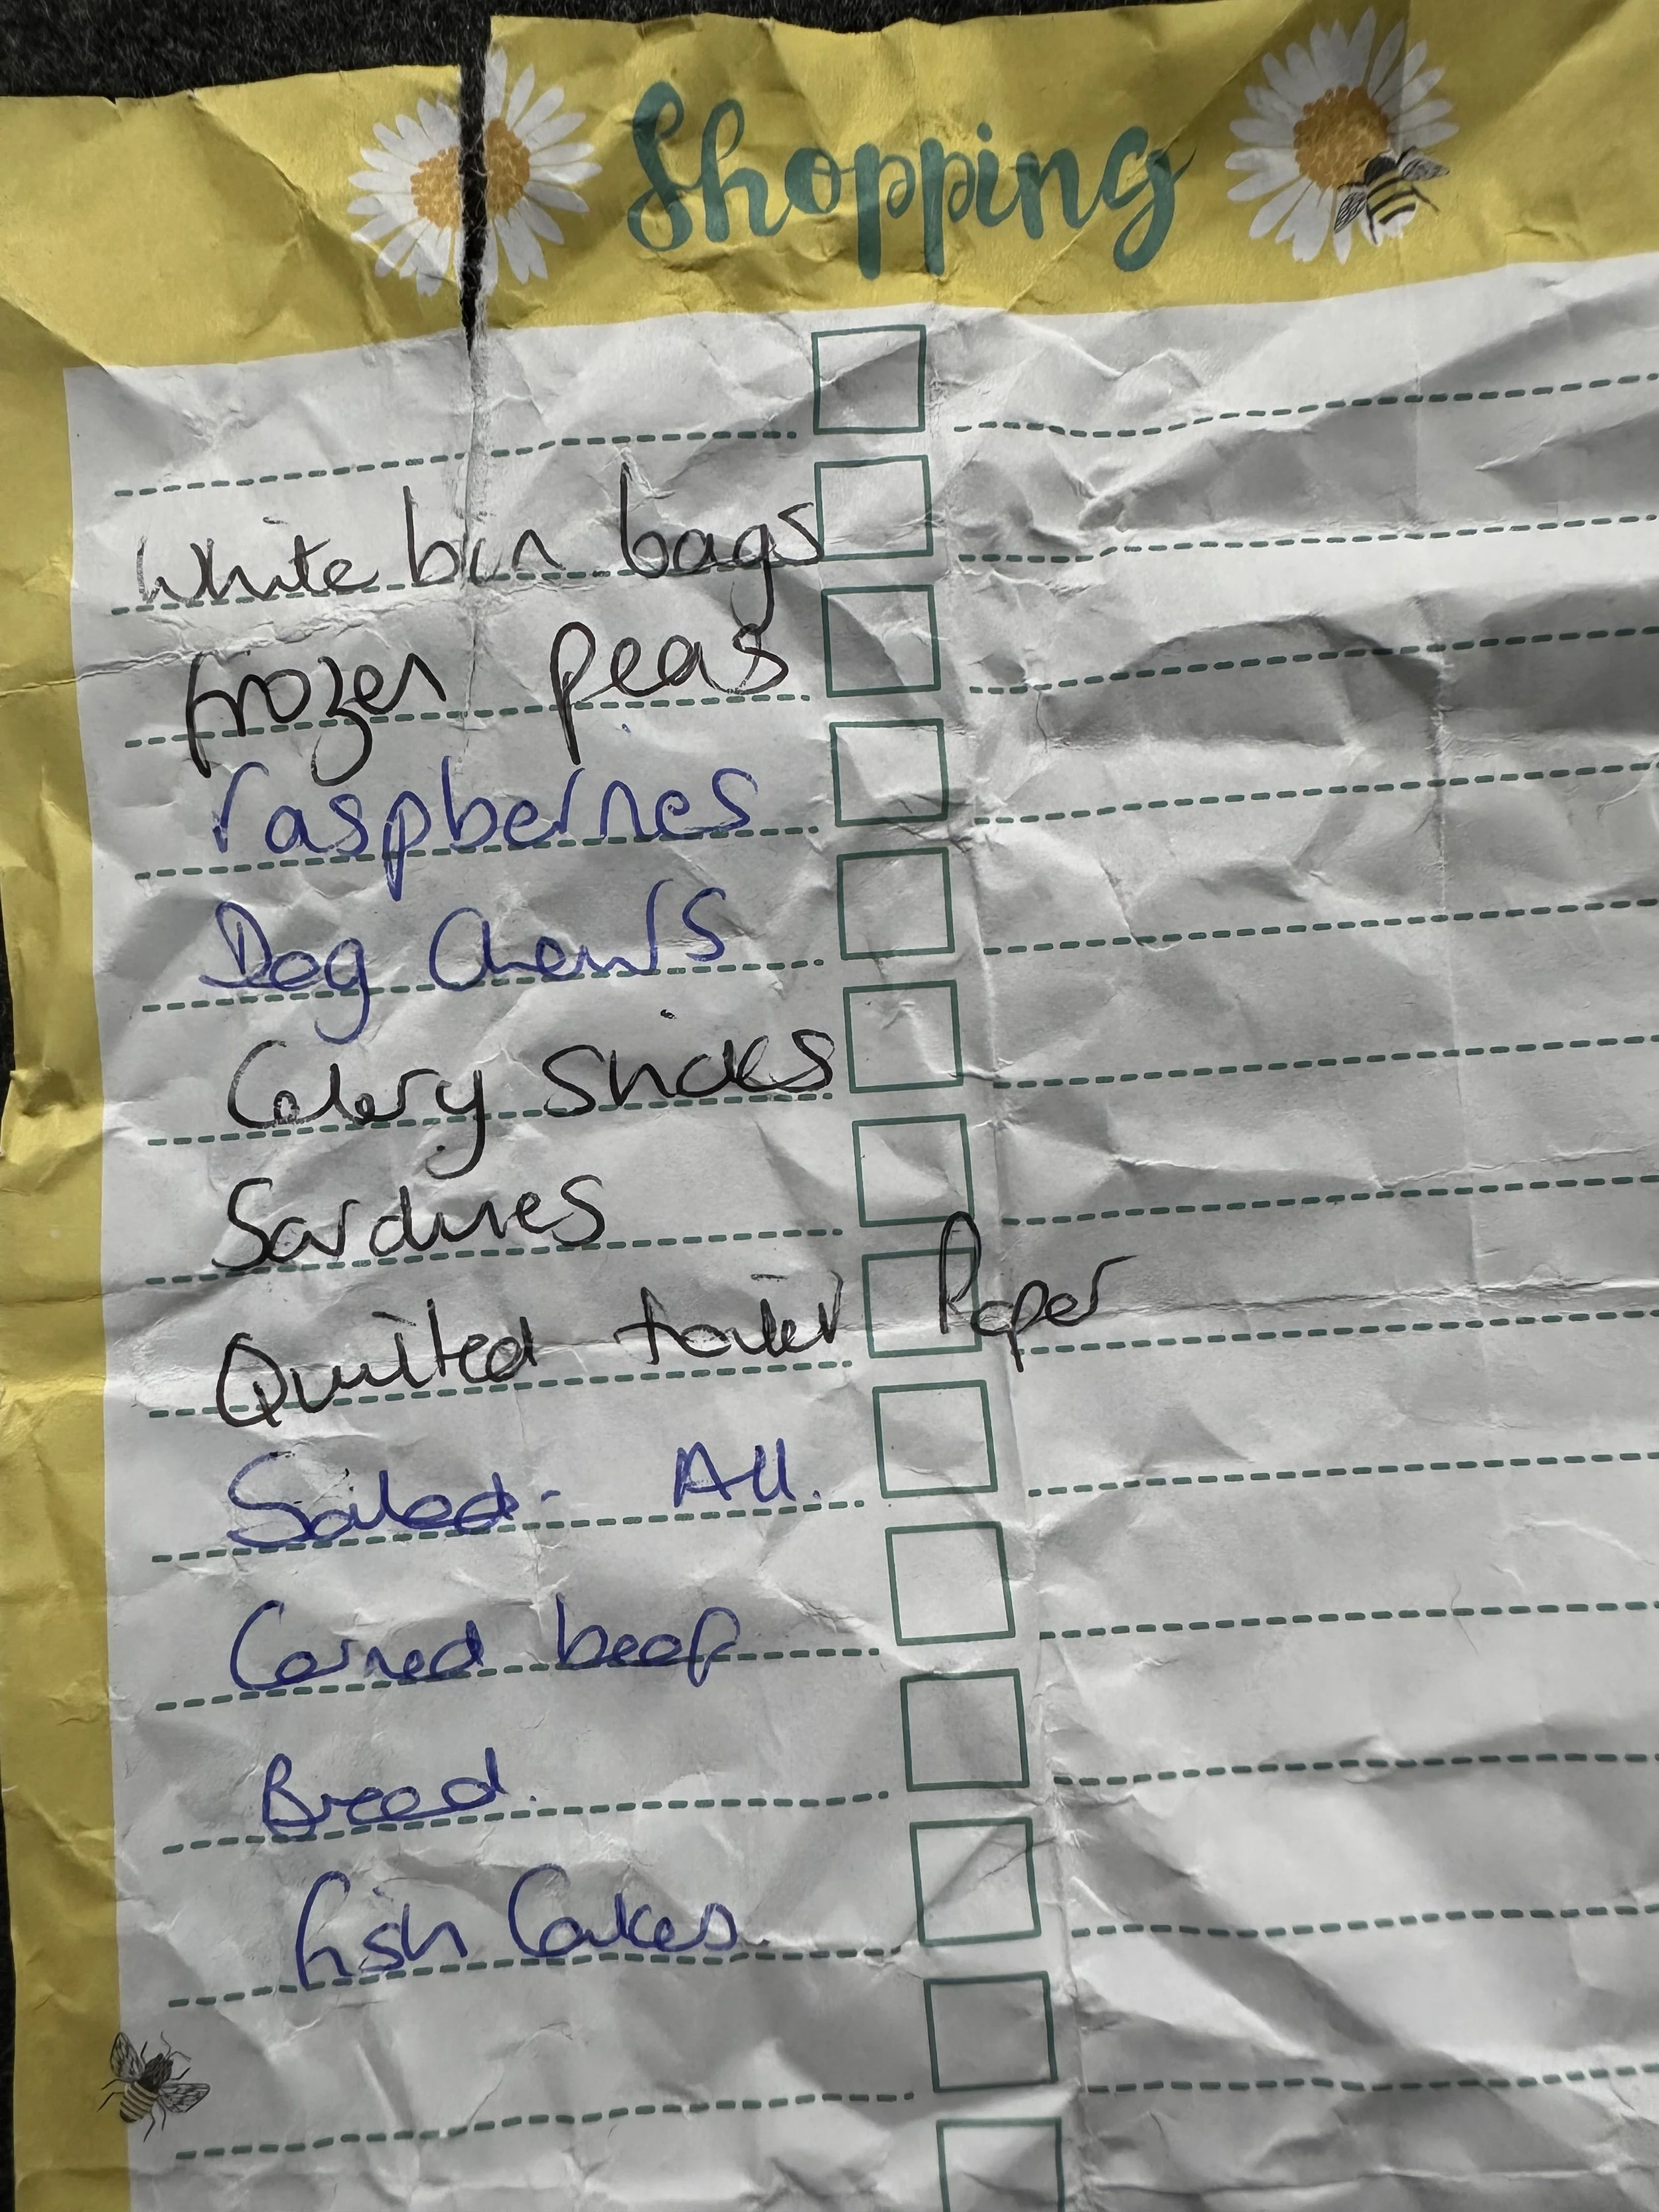 Shopping
White bin bags
frozen peas
raspberries
Dog Chews
Celery sticks
Sardines
Quilted toilet Paper
Salad - All.
Corned beef
Bread.
fish Cakes.